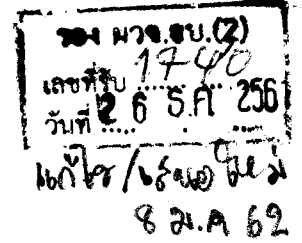 รอง ผวจ.ชบ.(2)
เลขที่รับ 1740
วันที่ 26 ธ.ค. 256
แก้ไข/เสนอใหม่
8 ม.ค 62